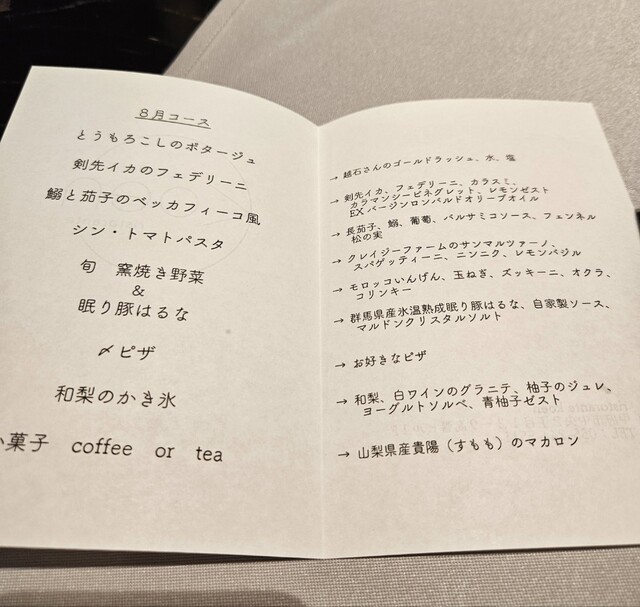 8月コース
とうもろこしのポタージュ
剣先イカのフェデリーニ
鰯と茄子のベッカフィーコ風
シン・トマトパスタ
旬 窯焼き野菜
&
眠り豚はるな
〆ピザ
和梨のかき氷
菓子 coffee or tea
→ 越石さんのゴールドラッシュ、水、塩
→ 剣先イカ、フェデリーニ、カラスミ、
カラマンシービネグレット、レモンゼスト
EXバージンロンバルドオリーブオイル
→ 長茄子、鰯、葡萄、バルサミコソース、フェンネル
松の実
→ クレイジーファームのサンマルツァーノ、
スパゲッティーニ、ニンニク、レモンバジル
→ モロッコいんげん、玉ねぎ、ズッキーニ、オクラ、
コリンキー
→ 群馬県産氷温熟成眠り豚はるな、自家製ソース、
マルドンクリスタルソルト
→ お好きなピザ
→ 和梨、白ワインのグラニテ、柚子のジュレ、
ヨーグルトソルベ、青柚子ゼスト
→ 山梨県産貴陽（すもも）のマカロン